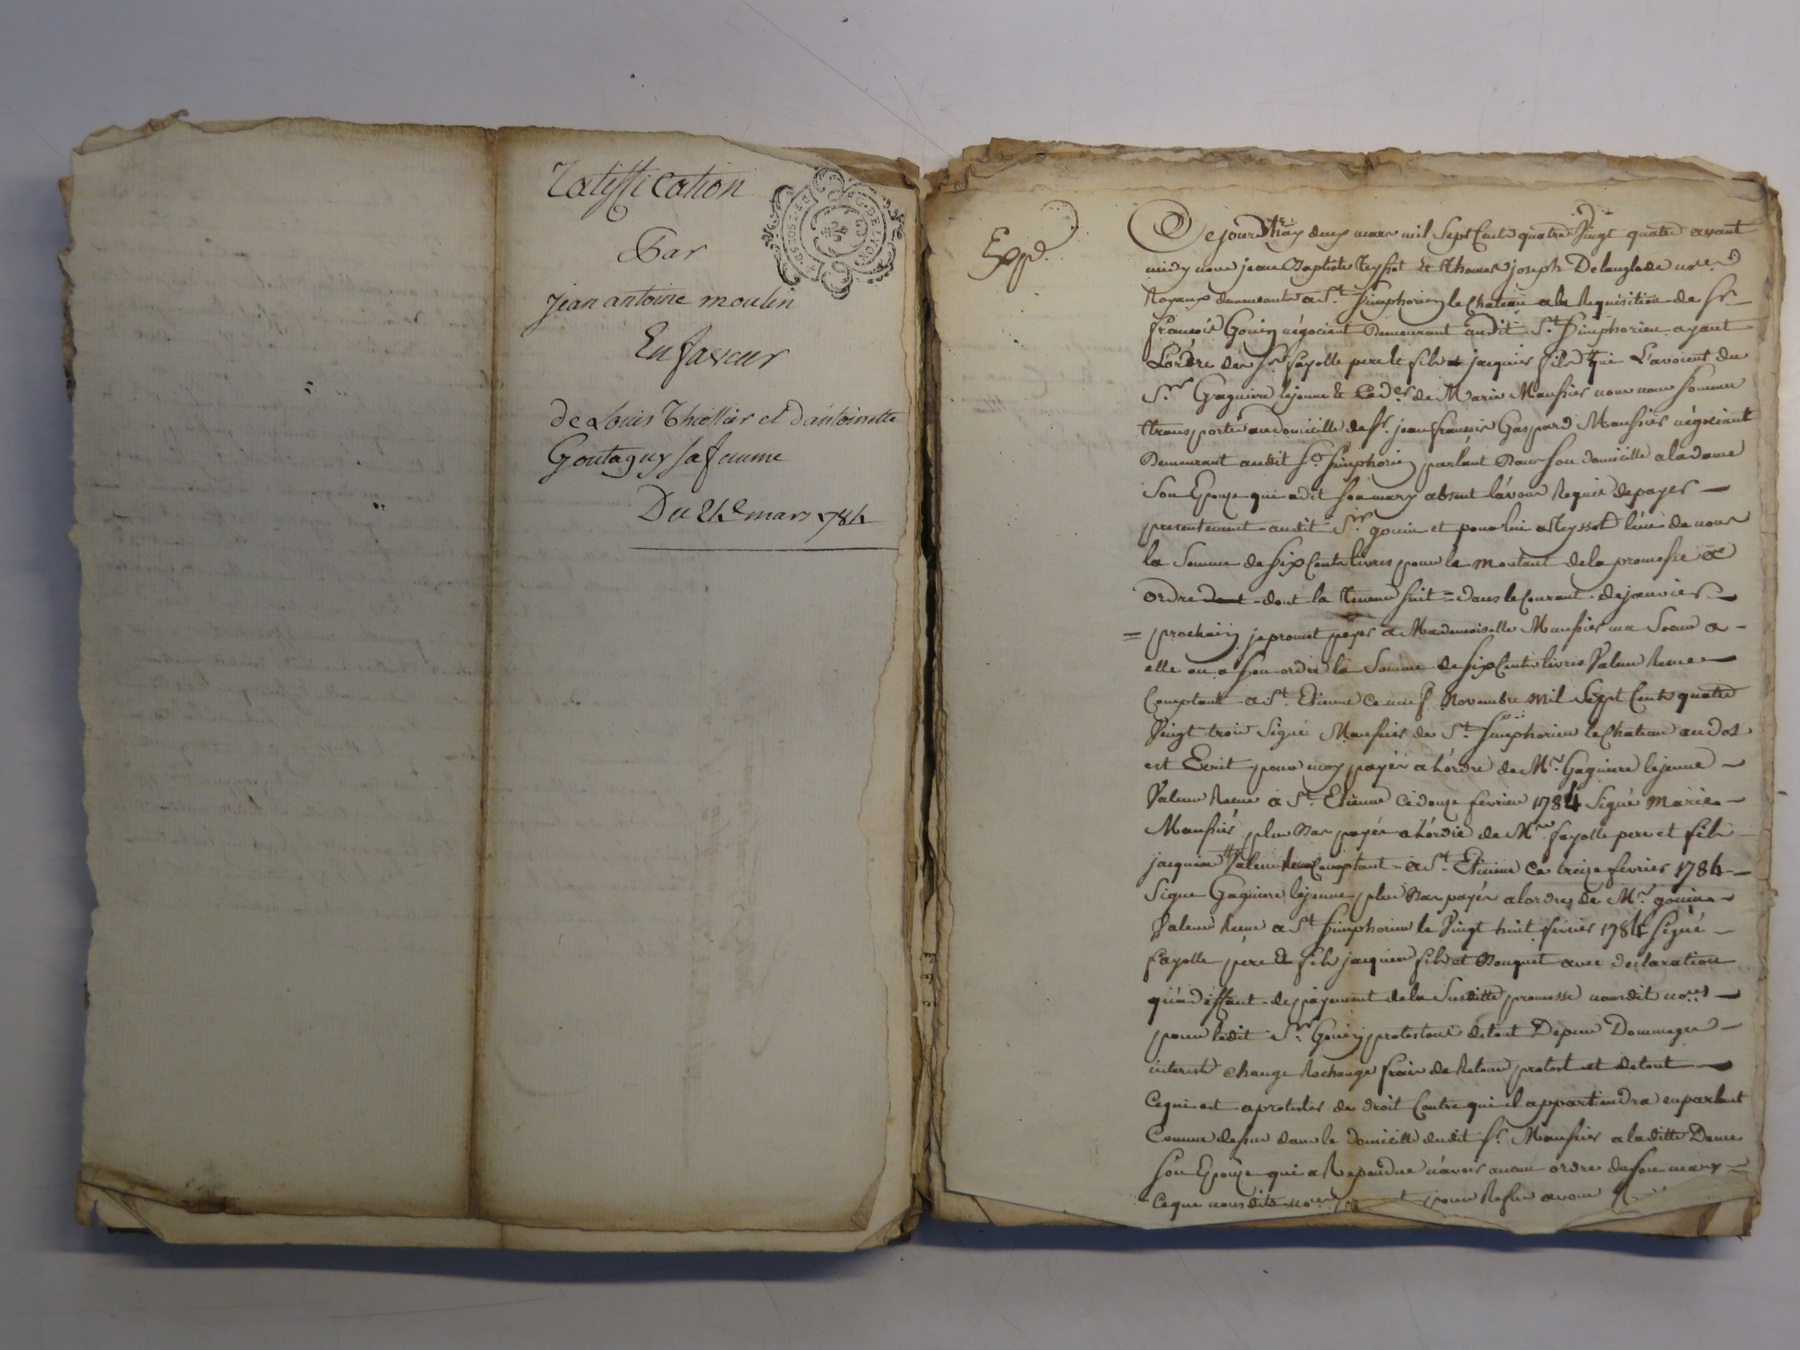 Ratiffication
Par
jean antoine moulin
En faveur
de Louis Thiollier et d'antoinette
Goutagny sa femme
Du 2e mars 1784
G. DE LYON
Expé
Cejourdhuy deux mars mil sept Cents quatre Vingt quatre avant
midy nous jean Baptiste Reyssot et Thomas joseph Delanglade nores
Royaux demeurants a St Simphorien le chateau a la Requisition de Sr
françois Gouin négociant Demeurant audit St Simphorien ayant
L'ordre des Srs fayolle pere et fils et jaquier fils qui L'avoient du
Sr Gaguiere lejeune et de Marie Maussier nous nous sommes
transportés au domicille de Sr jean françois Gaspard Maussier négociant
Demeurant audit St Simphorien parlant Dans son domicille a la dame
Son Epouze qui a dit son mary absent L'avons Requis de payer
presentement audit Sr gouin et pour lui a Reyssot l'un de nous
la Somme de six Cents livres pour le montant de la promesse a
ordre dont la teneur suit = dans le Courant de janvier
= prochain je promet payer a Mademoiselle Maussier ma Soeur a
elle ou a son ordre la Somme de six Cents livres Valeur Reçue
Comptant a St Etienne ce neuf Novembre mil Sept Cents quatre
Vingt trois Signé Maussier de St Simphorien le chateau au dos
est Ecrit pour moy payér a L'ordre de Mr Gaguiere lejeune
Valeur Reçue a St Etienne Ce douze fevrier 1784 Signé Marie
Maussier plus Bas payér a L'ordre de Mrs fayolle pere et fils
jacquier Valeur Comptant a St Etienne ce treize fevrier 1784
Signé Gaguiere lejeune plus Bas payér a lordre de Mr gouin
Valeur Reçue a St Simphorien le Vingt huit fevrier 1784 Signé
fayolle pere et fils jacquier fils et Bouquet avec declaration
qu'a deffaut de payement de la Susditte promesse nousdit nores
pour ledit Sr Gouin protestons de tout Depens Dommages
interest change Rechange frais de Retour protest et de tout
Ce qui est a protester de droit Contre qui il appartiendra en parlant
Comme dessus dans le domicille dudit Sr Maussier a laditte Dame
son Epouze qui a Repondue n'avoir aucun ordre de son mary
Ce que nousdits nores pour Refus avons